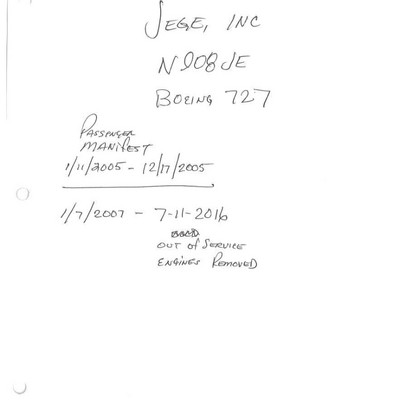 JEGE, INC
N908JE
BOEING 727
PASSENGER
MANIFEST
1/11/2005 - 12/17/2005
1/7/2007 - 7-11-2016
OUT OF SERVICE
ENGINES REMOVED